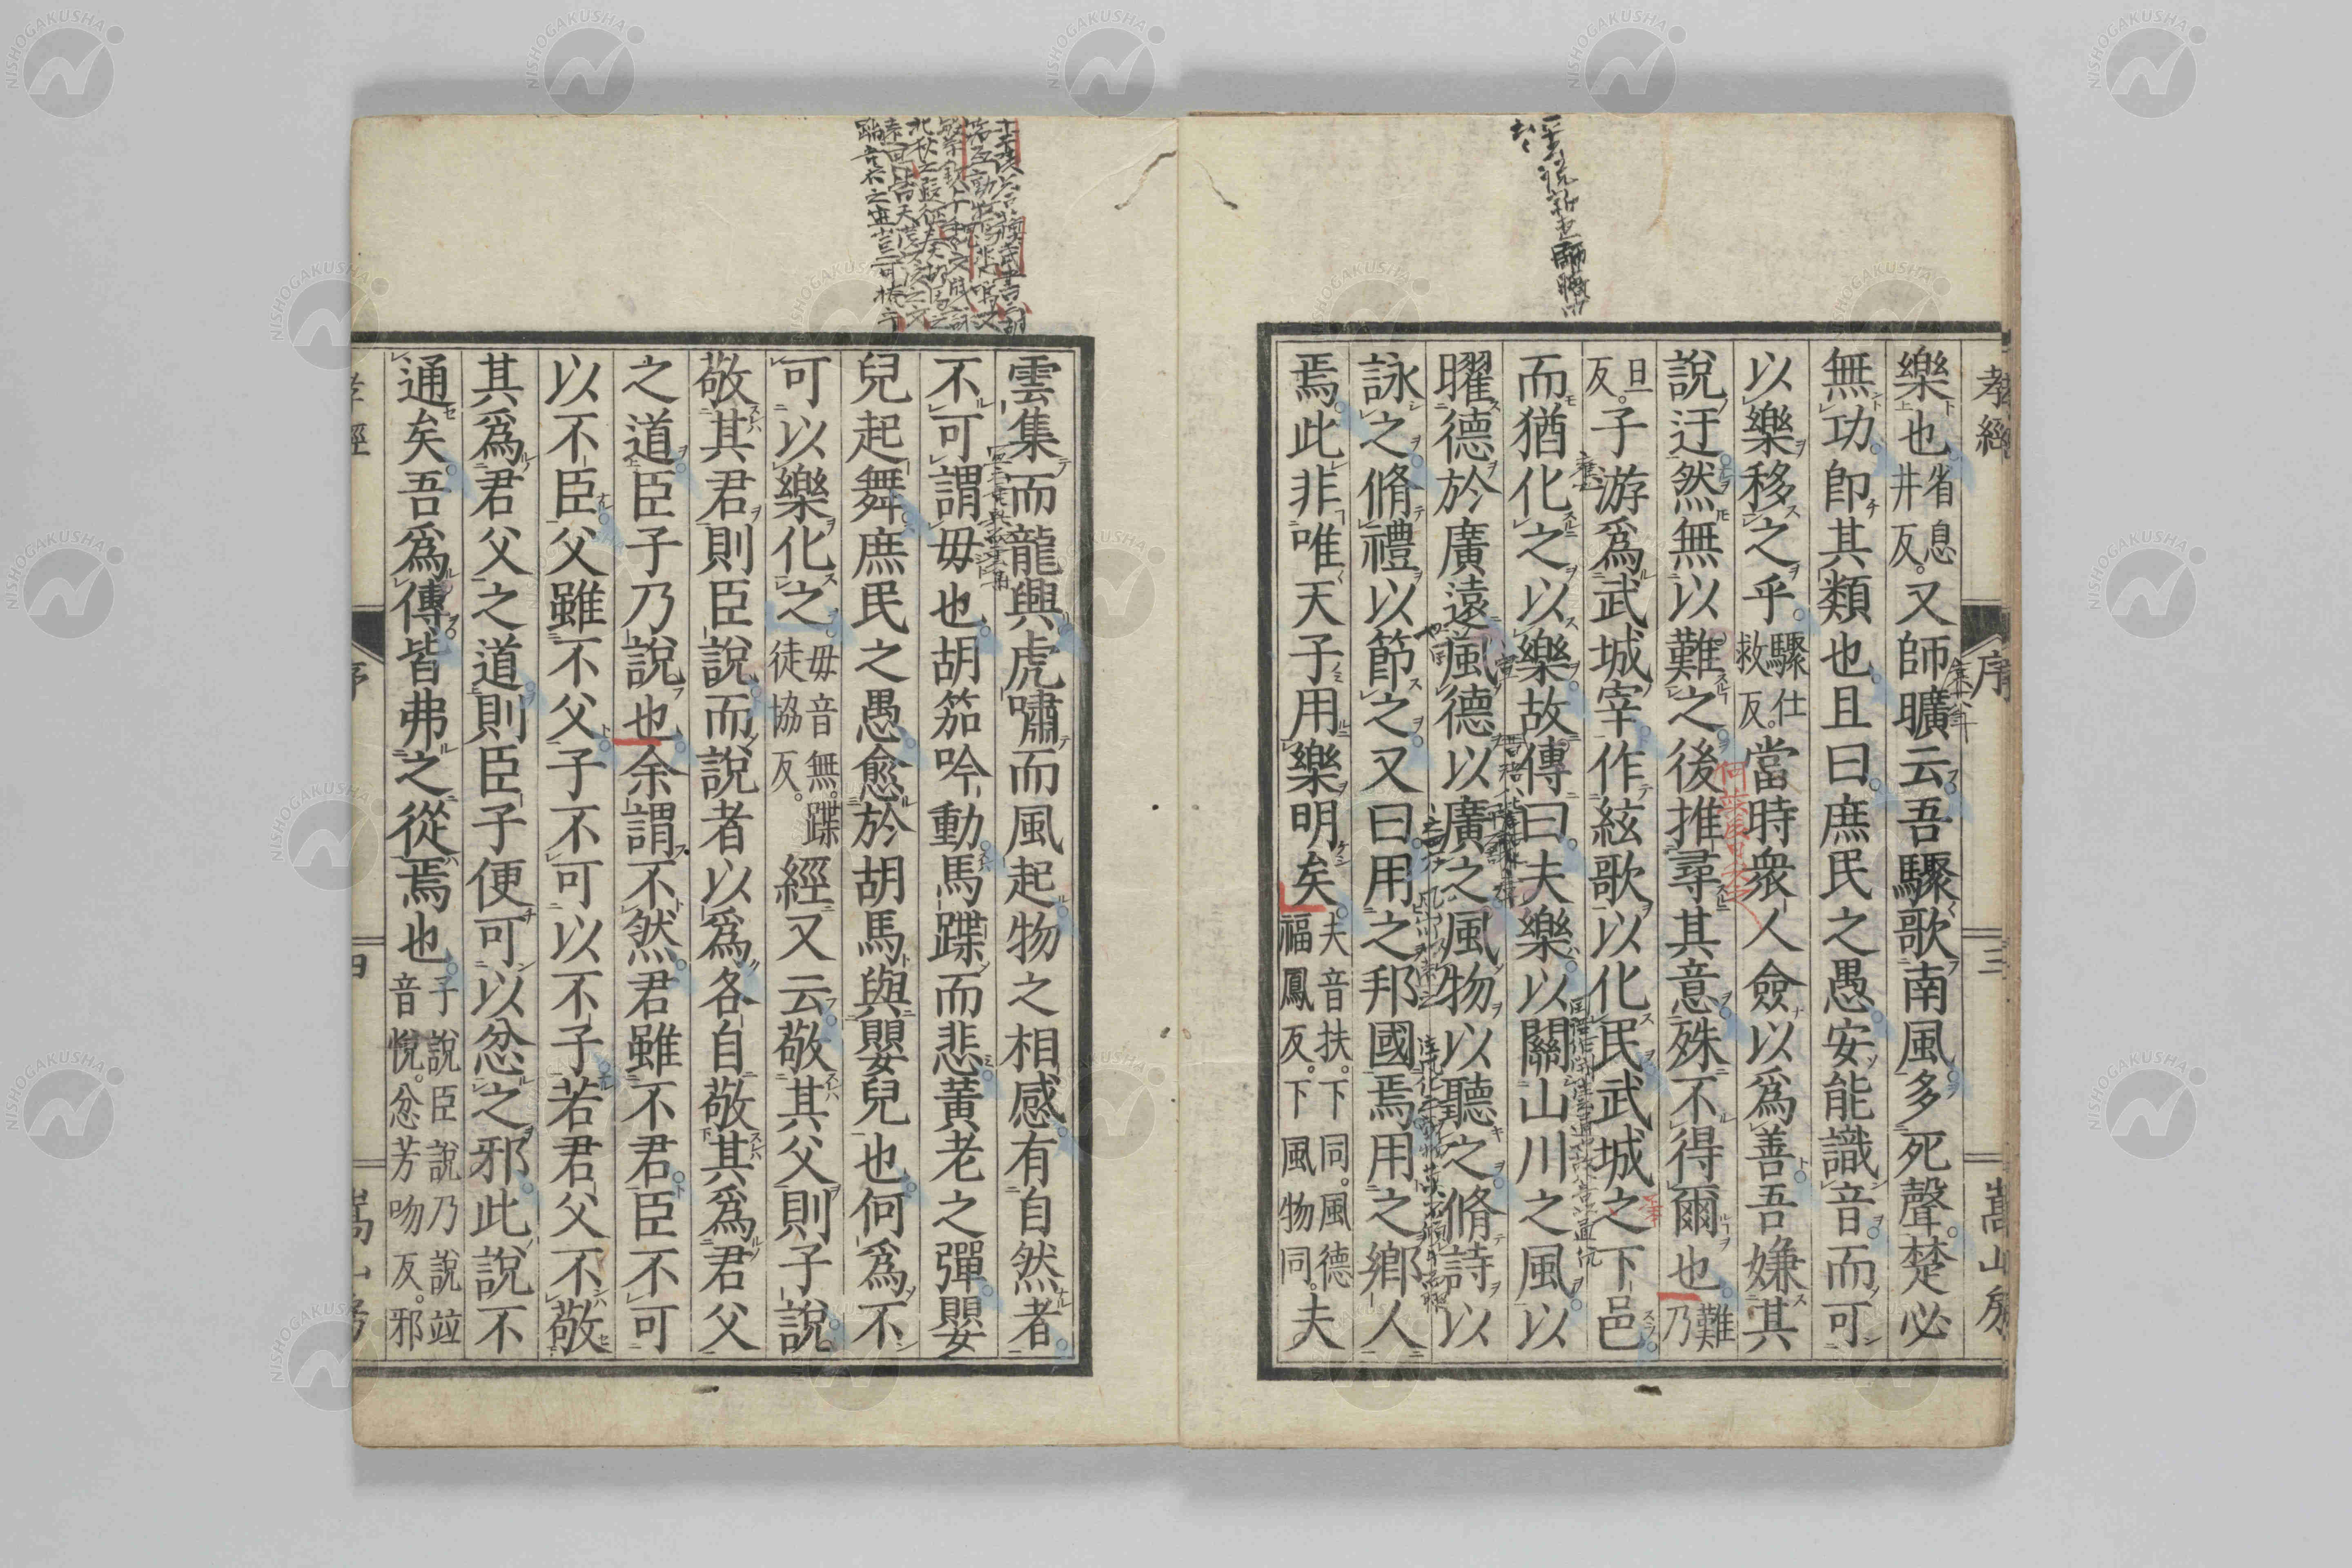 孝經
序
三
嵩山房
樂也省息井反。又師曠云吾驟歌南風多死聲。楚必
無功即其類也且曰庶民之愚安能識音而可
以樂移之乎驟仕救反。當時衆人僉以爲善吾嫌其
說迂然無以難之後推尋其意殊不得爾也難乃
旦反。子游爲武城宰作絃歌以化民武城之下邑
而猶化之以樂故傳曰夫樂以關山川之風以
曜德於廣遠風德以廣之風物以聽之脩詩以
詠之脩禮以節之又曰用之邦國焉用之鄉人
焉此非唯天子用樂明矣。夫音扶。下同。風德福鳳反。下風物同。夫
雲集而龍興虎嘯而風起物之相感有自然者
不可謂毋也胡笳吟動馬蹀而悲黃老之彈嬰
兒起舞庶民之愚愈於胡馬與嬰兒也何爲不
可以樂化之毋音無。蹀徒協反。經又云敬其父則子說
敬其君則臣說而說者以爲各自敬其爲君父
之道臣子乃說也余謂不然君雖不君臣不可
以不臣父雖不父子不可以不子若君父不敬
其爲君父之道則臣子便可以忿之邪此說不
通矣吾爲傳皆弗之從焉也。子說臣說乃說竝音悅。忿芳吻反。邪
孝經
序
四
嵩山房
NISHOGAKUSHA